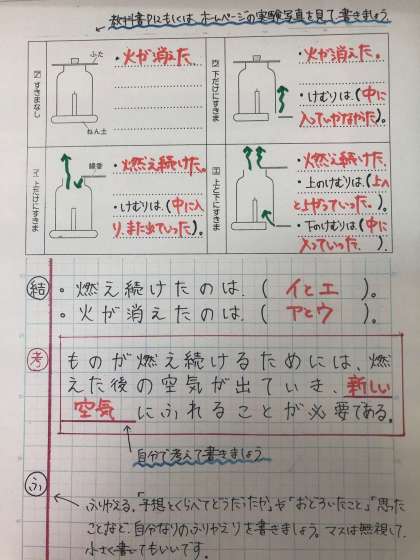 教科書P.にもしくは、ホームページの実験写真を見て書きましょう
ア すきまなし
ふた
ねん土
・火が消えた。
ウ 下だけにすきま
・火が消えた。
・けむりは、(中に
入っていかなかった)。
イ 上だけにすきま
線香
・燃え続けた。
・けむりは、(中に入
り、また出ていった)。
エ 上と下にすきま
・燃え続けた。
・上のけむりは、(上へ
と上がっていった)。
・下のけむりは、(中に
入っていった)。
結
・燃え続けたのは、(イとエ)。
・火が消えたのは、(アとウ)。
考
ものが燃え続けるためには、燃
えた後の空気が出ていき、新しい
空気にふれることが必要である。
自分で考えて書きましょう
ふ
ふりかえる。「予想とくらべてどうだったか」や「おどろいたこと」「思った
ことなど、自分なりのふりかえりを書きましょう。マスは無視して、
小さく書いてもいいです。